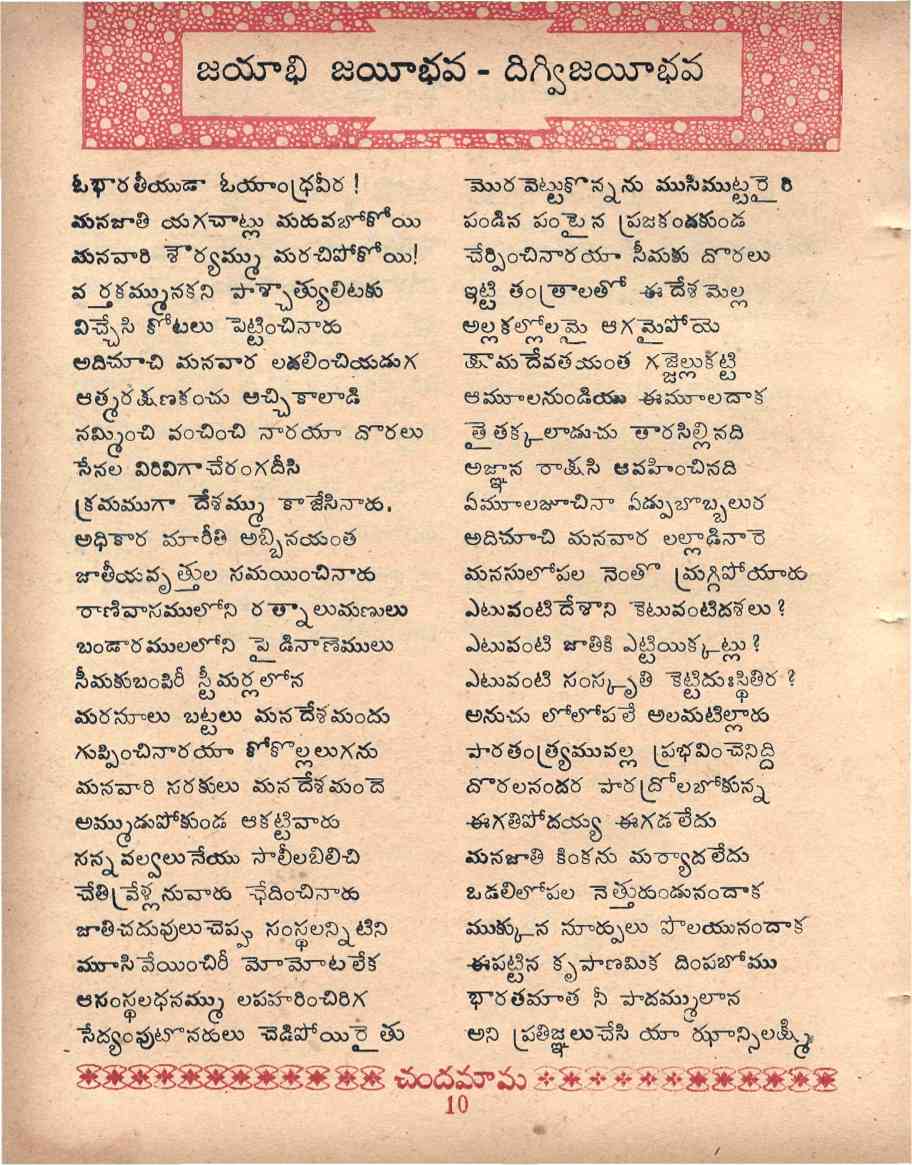 జయాభి జయీభవ - దిగ్విజయీభవ
ఓభారతీయుడా ఓయాంధ్రవీర !
మనజాతి యగచాట్లు మరువబోకోయి
మనవారి శౌర్యమ్ము మరచిపోకోయి!
వర్తకమ్మునకని పాశ్చాత్యులిటకు
విచ్చేసి కోటలు పెట్టించినారు
అదిచూచి మనవార లదలించియడుగ
ఆత్మరక్షణకంచు అచ్చికాలాడి
నమ్మించి వంచించి నారయా దొరలు
సేనల విరివిగా చేరంగదీసి
క్రమముగా దేశమ్ము కాజేసినారు.
అధికార మారీతి అబ్బినయంత
జాతీయవృత్తుల సమయించినారు
రాణివాసములోని రత్నాలుమణులు
బండారములలోని పైడినాణెములు
సీమకుబంపిరీ స్టీమర్లలోన
మరనూలు బట్టలు మనదేశమందు
గుప్పించినారయా కోకొల్లలుగను
మనవారి సరకులు మనదేశమందె
అమ్ముడుపోకుండ ఆకట్టివారు
సన్నవల్వలునేయు సాలీలబిలిచి
చేతివ్రేళ్లనువారు ఛేదించినారు
జాతిచదువులుచెప్పు సంస్థలన్నిటిని
మూసివేయించిరీ మోమోటలేక
ఆసంస్థలధనమ్ము లపహరించిరిగ
సేద్యంవుటొనరులు చెడిపోయిరైతు
మొరవెట్టుకొన్నను ముసిముట్టరైరి
పండిన పంటైన ప్రజకందకుండ
చేర్పించినారయా సీమకు దొరలు
ఇట్టి తంత్రాలతో ఈదేశమెల్ల
అల్లకల్లోలమై ఆగమైపోయె
క్షామదేవతయంత గజ్జెల్లుకట్టి
ఆమూలనుండియు ఈమూలదాక
తైతక్కలాడుచు తారసిల్లినది
అజ్ఞాన రాక్షసి ఆవహించినది
ఏమూలజూచినా ఏడ్పుబొబ్బలుర
అదిచూచి మనవార లల్లాడినారె
మనసులోపల నెంతొ మ్రగ్గిపోయారు
ఎటువంటిదేశాని కెటువంటిదశలు ?
ఎటువంటి జాతికి ఎట్టియిక్కట్లు ?
ఎటువంటి సంస్కృతి కెట్టిదుఃస్థితిర ?
అనుచు లోలోపలే అలమటిల్లారు
పారతంత్ర్యమువల్ల ప్రభవించెనిద్ది
దొరలనందర పారద్రోలబోకున్న
ఈగతిపోదయ్య ఈగడలేదు
మనజాతి కింకను మర్యాదలేదు
ఒడలిలోపల నెత్తురుండునందాక
ముక్కున నూర్పులు పొలయునందాక
ఈపట్టిన కృపాణమిక దింపబోము
భారతమాత నీ పాదమ్ములాన
అని ప్రతిజ్ఞలుచేసి యా ఝాన్సిలక్ష్మి
చందమామ
10